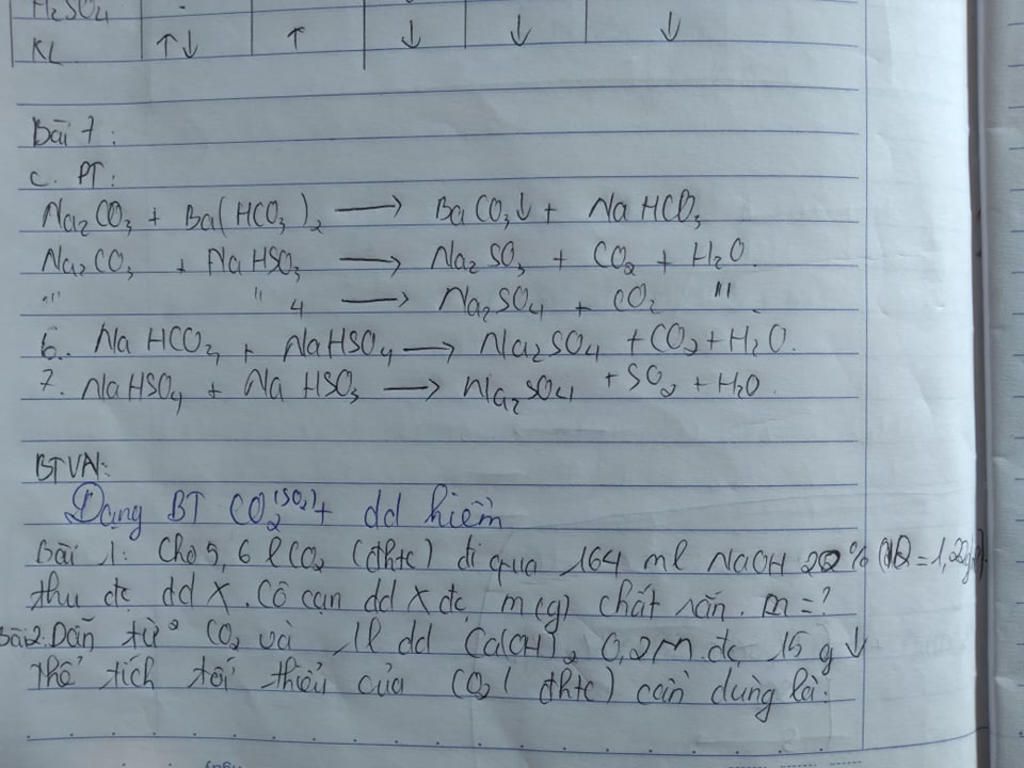 H₂SO₄ -
KL ↑↓ ↑ ↓ ↓ ↓
Bài 7:
c. PT:
Na₂CO₃ + Ba(HCO₃)₂ → BaCO₃↓ + NaHCO₃
Na₂CO₃ + NaHSO₃ → Na₂SO₃ + CO₂ + H₂O.
"" " 4 → Na₂SO₄ + CO₂ ""
6. NaHCO₃ + NaHSO₄ → Na₂SO₄ + CO₂ + H₂O.
7. NaHSO₄ + NaHSO₃ → Na₂SO₄ + SO₂ + H₂O.
BTVN:
Dạng BT CO₂(SO₂) + dd kiềm
Bài 1: Cho 5,6 l CO₂ (đktc) đi qua 164 ml NaOH 20% (d=1,22g/ml)
thu đc dd X. Cô cạn dd X đc m(g) chất rắn. m=?
Bài 2. Dẫn từ² CO₂ và 1l dd Ca(OH)₂ 0,2M đc 15 g↓
Thể tích tối thiểu của CO₂ (đktc) cần dùng là: